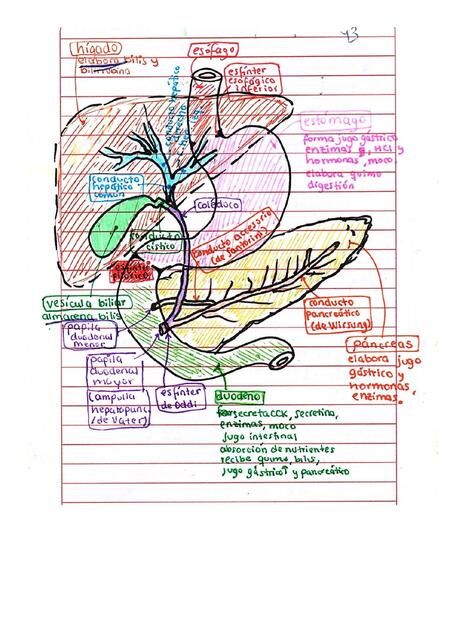 43
hígado
elabora bilis y
bilirrubina
esófago
esfínter
esofágico
inferior
conducto hepático
estómago
forma jugo gástrico
enzimas, HCl y
hormonas, moco.
elabora quimo
digestión
conducto
hepático
común
colédoco
conducto
cístico
conducto accesorio
(de Santorini)
esfínter
pilórico
vesícula biliar
almacena bilis
papila
duodenal
menor
conducto
pancreático
(de Wirsung)
páncreas
elabora jugo
gástrico y
hormonas
enzimas.
papila
duodenal
mayor
(ampulla
hepatopanc
(de Vater)
esfínter
de Oddi
duodeno
secreta CCK, secretina,
enzimas, moco
jugo intestinal
absorción de nutrientes
recibe quimo, bilis,
jugo gástrico y pancreático